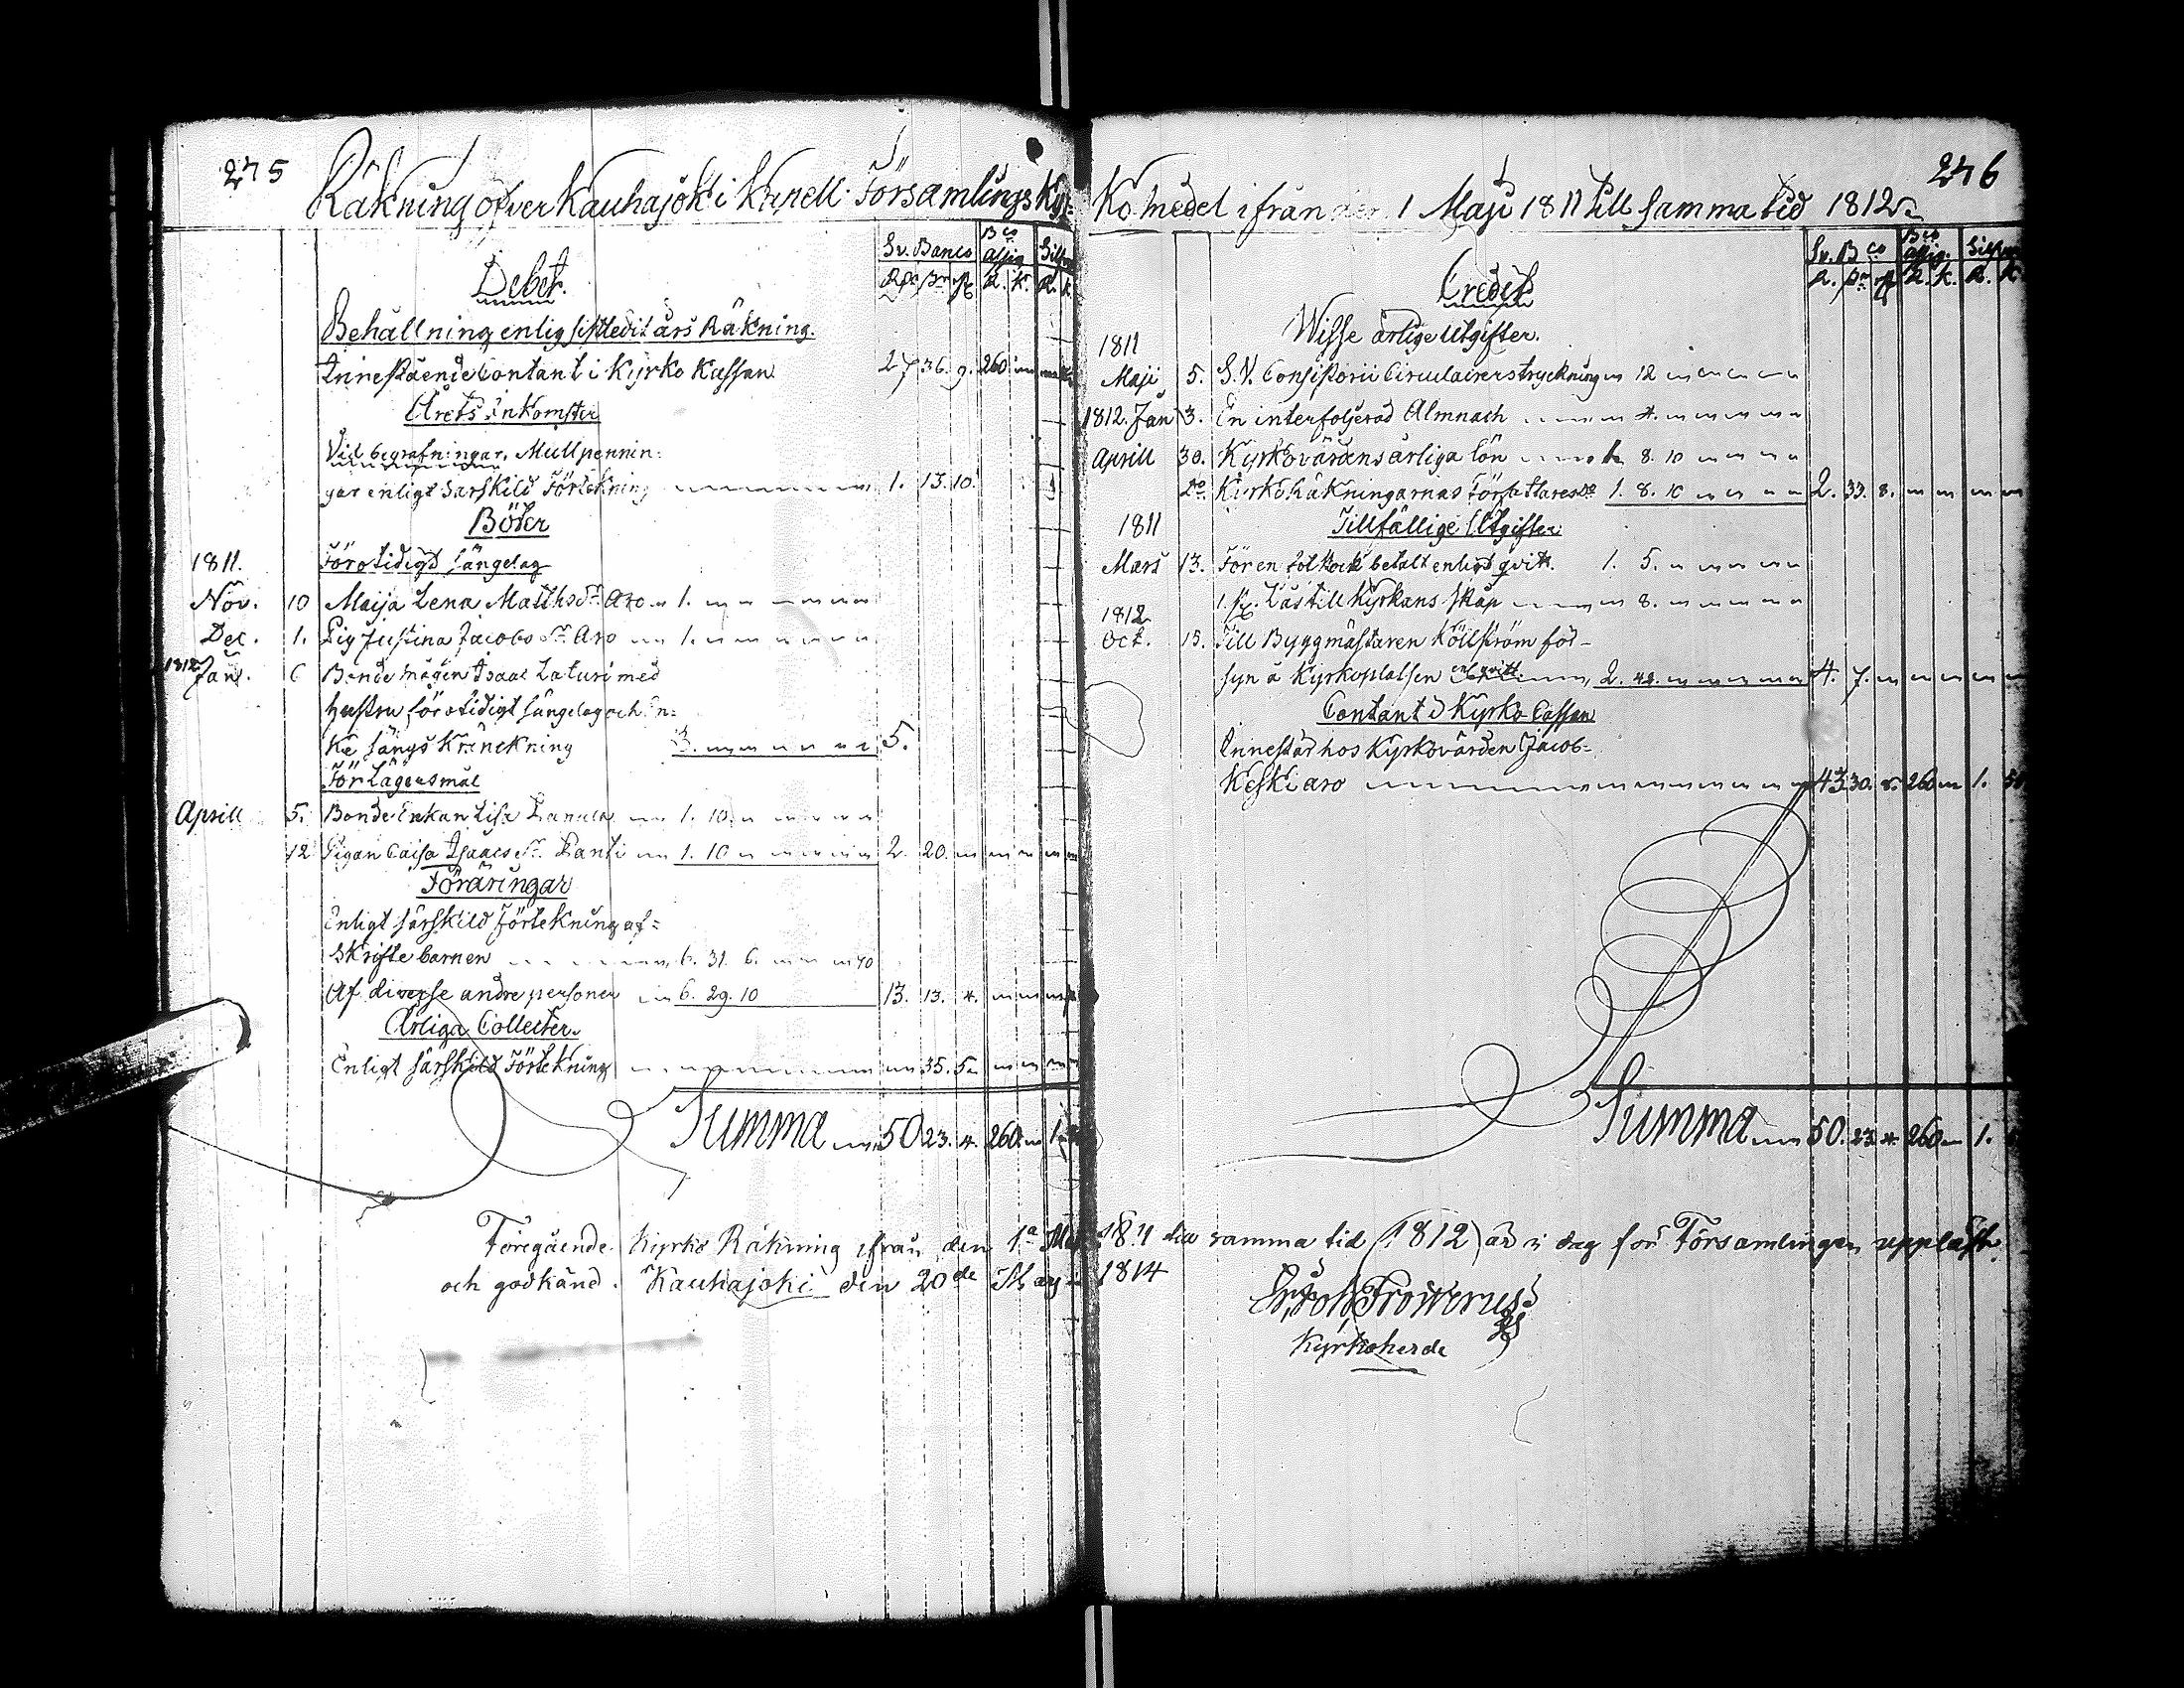 275
Räkning öfver Kauhajoki Capell Församlings Kyr-
Sv. Banco
Bco assig.
Silfver
Debet.
Behållning enlig sistledit års Räkning.
Innestående Contant i Kyrko Kassan 27 36. 9. 260
Årets inkomster
Vid begrafningar, Mullpennin:
gar enligt särskild Förtekning 1. 13. 10.
Böter
1811. För otidigt sängelag
Nov. 10 Maija Lena Matthsdr Aro 1.
Dec. 1. Pig Justina Jacobsdr Aro 1.
1812 Jan. 6 Bondemågen Isaac Laturi med
hustru för otidigt sängelag och En:
ke sängs kränckning 3. 5.
För Lägersmål
Aprill 5. Bonde Enkan Lisa 1. 10.
12 Pigan Caisa Isaacsdr 1. 10 2. 20.
Föräringar
Enligt särskild Förtekning af:
Skriftebarnen 6. 31. 6. 40
Af diverse andre personer 6. 29. 10 13. 13. 4.
Årliga Collecter.
Enligt särskild Förtekning 35. 5
Summa 50 23. 4. 260. 1.
Föregående Kyrko Räkning ifrån den 1a Maji
och godkänd. Kauhajoki den 20de Maji
276
Ko medel ifrån den 1 Maji 1811 till samma tid 1812.
Sv. Bco
Bco assig.
Silfver
R. K. R. K.
Credit
1811 Wisse årlige Utgifter.
Maji 5. S. V. Consistorii Circulairers tryckning 12
1812. Jan 3. En interfolierad Almnach 4.
Aprill 30. Kyrkovärdens årliga lön 1. 8. 10
Do Kyrkoräkningarnas Författares do 1. 8. 10 2. 33. 8.
1811 Tillfällige Utgifter
Mars 13. För en betalt enligt qvitt. 1. 5.
1 st. Lås till Kyrkans skåp 8.
1812
Oct. 15. Till Byggmästaren Köllström för
syn å Kyrkoplatsen enl. qvitt. 2. 42. 4. 7.
Contant i Kyrko Cassan
Innestår hos Kyrkovärden Jacob
Keski aro 43 30. 8. 260 1. 50
Summa 50. 23. 4. 260 1.
1811 till samma tid (1812) är i dag för Församlingen uppläst
1814
Kyrkoherde